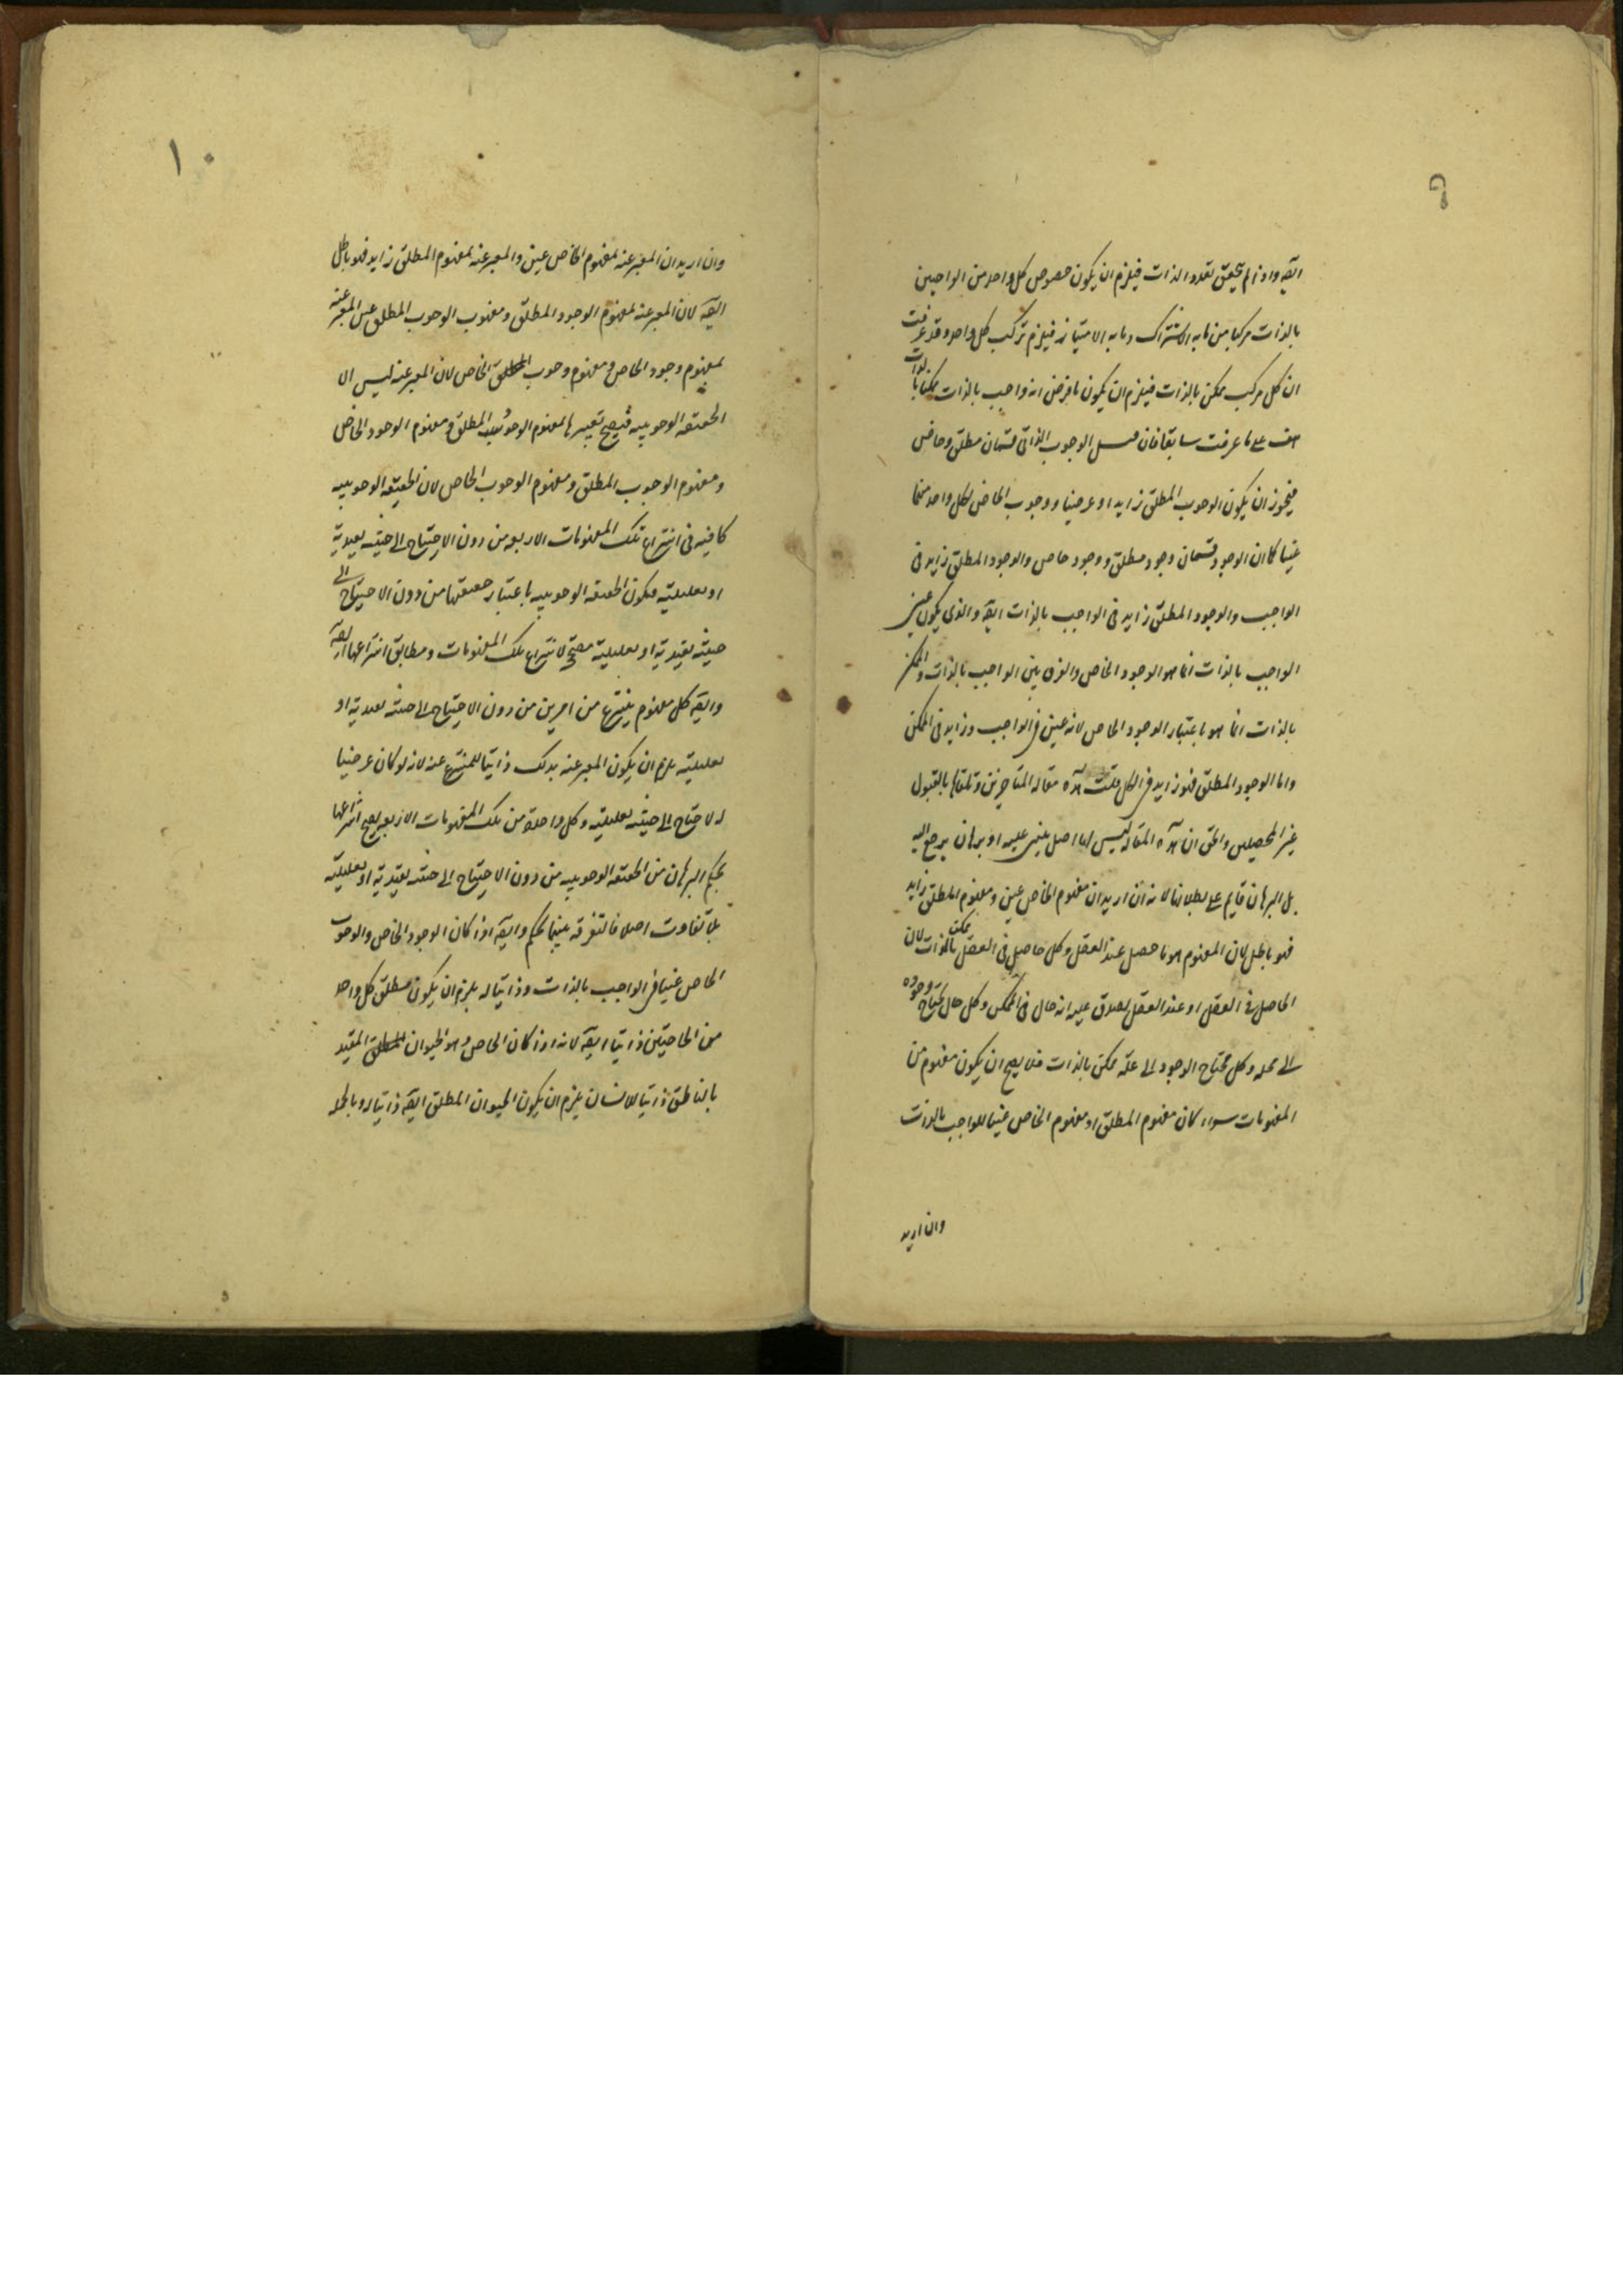 ٩
ایضه واذا لم یتحقق تعدد الذات فیلزم ان یکون خصوص کل واحد من الواجبین
بالذات مرکبا من ما به الاشتراک و ما به الامتیاز فیلزم ترکب کل واحد وقد عرفت
ان کل مرکب ممکن بالذات فیلزم ان یکون ما فرض انه واجب بالذات ممکنا بالذات
هف علی ما عرفت سابقا فان قیل الوجوب الذاتی قسمان مطلق وخاص
فیجوز ان یکون الوجوب المطلق زایدا وعرضیا ووجوب الخاص لکل واحد منهما
عینیا کما ان الوجود قسمان وجود مطلق ووجود خاص والوجود المطلق زاید فی
الواجب والوجود المطلق زاید فی الواجب بالذات ایضه والذی یکون عین
الواجب بالذات انما هو الوجود الخاص والفرق بین الواجب بالذات والممکن
بالذات انما هو باعتبار الوجود الخاص لانه عین فی الواجب وزاید فی الممکن
واما الوجود المطلق فهو زاید فی الکل قلت هذه مقالة المتاخرین وتلقاها بالقبول
غیر المحصلین والحق ان هذه المقاله لیس لها اصل یبنی علیه او برهان یرجع الیه
بل البرهان قایم علی بطلانها لانه ان ارید ان مفهوم الخاص عین ومفهوم المطلق زاید
فهو باطل لان المفهوم هو ما حصل عند العقل وکل حاصل فی العقل ممکن بالذات لان
الحاصل فی العقل او عند العقل یصدق علیه انه حال فی الممکن وکل حال یحتاج وجوده
الی محله وکل محتاج الوجود الی علة ممکن بالذات فلا یصح ان یکون مفهوم من
المفهومات سواء کان مفهوم المطلق او مفهوم الخاص عینا للواجب بالذات
وان ارید
١٠
وان ارید ان المعبر عنه بمفهوم الخاص عین والمعبر عنه بمفهوم المطلق زاید فهو باطل
ایضه لان المعبر عنه بمفهوم الوجود المطلق ومفهوب الوجوب المطلق عین المعبر عنه
بمفهوم وجود الخاص ومفهوم وجوب الخاص لان المعبر عنه لیس الا
الحقیقه الوجوبیه فیصح تعبیرها بمفهوم الوجود المطلق ومفهوم الوجود الخاص
ومفهوم الوجوب المطلق ومفهوم الوجوب الخاص لان الحقیقه الوجوبیه
کافیه فی انتزاع تلک المفهومات الاربعه من دون الاحتیاج الی حیثیه تقییدیة
او تعلیلیة فیکون الحقیقه الوجوبیه باعتبار حقیقتها من دون الاحتیاج الی
حیثیه تقییدیة او تعلیلیة مصحح لانتزاع تلک المفهومات ومطابق انتزاعها
وایضه کل مفهوم ینتزع من امرین من دون الاحتیاج الی حیثیه تقییدیة او
تعلیلیه یلزم ان یکون المعبر عنه بذلک ذاتیا للمنتزع عنه لانه لو کان عرضیا
له لاحتاج الی حیثیه تعلیلیه وکل واحدة من تلک المفهومات الاربع یصح انتزاعها
بحکم البرهان من الحقیقه الوجوبیه من دون الاحتیاج الی حیثیه تقییدیة او تعلیلیة
بلا تفاوت اصلا فالتفرقه بینهما تحکم وایضه اذا کان الوجود الخاص والوجوب
الخاص عینیا فی الواجب بالذات وذاتیا له یلزم ان یکون مطلق کل واحد
من الخاصیتین ذاتیا ایضه لانه اذا کان الخاص وهو الحیوان المقید
بالناطق ذاتیا للانسان یلزم ان یکون الحیوان المطلق ایضه ذاتیا له وبالجمله